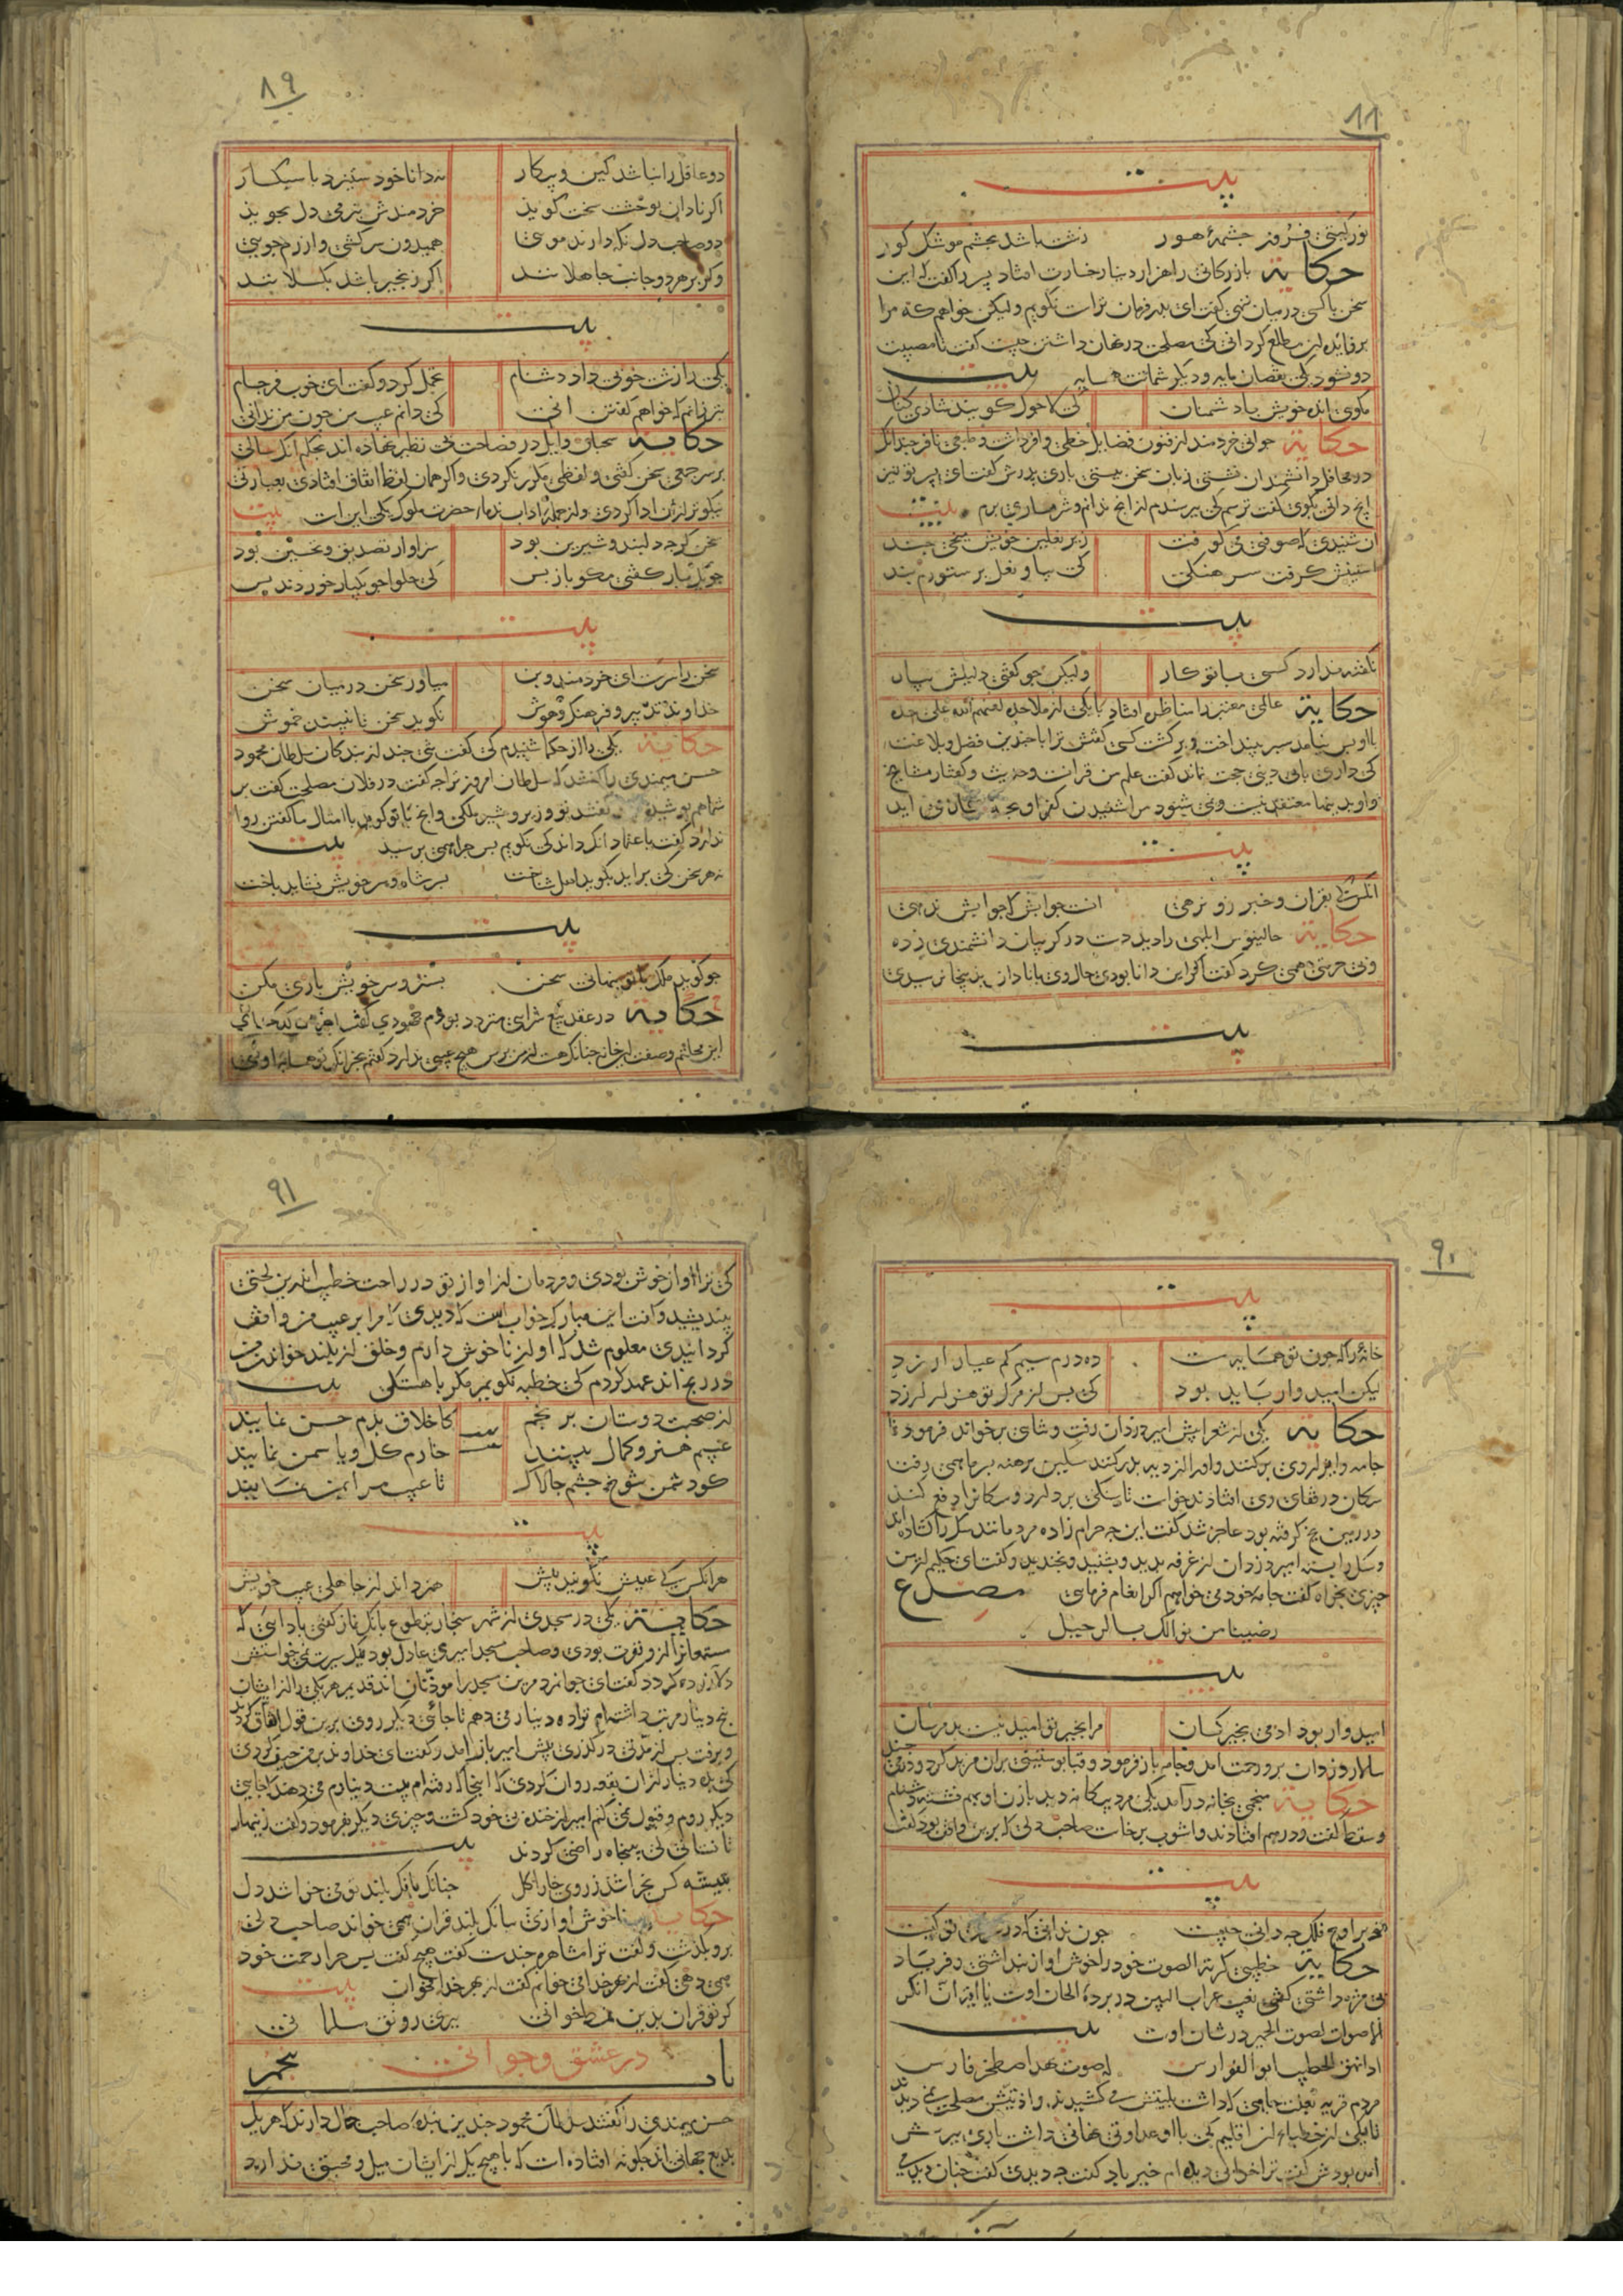 ۸۸
بیت
نور گیتی فروز چشمهٔ هور زشت باشد بچشم موشک کور
حکایة بازرگانی را هزار دینار خسارت افتاد پسر را گفت که این
سخن با کسی در میان ننهی گفت ای پدر فرمان تراست نگویم ولیکن خواهم که مرا
بر فایده این مطلع گردانی کی مصلحت در نهان داشتن چیست گفت تا مصیبت
دو نشود یکی نقصان مایه و دیگر شماتت همسایه بیت
مکوی انده خویش با دشمنان کی لاحول گویند شادی کنان
حکایة جوانی خردمند از فنون فضایل حظی وافر داشت و طبعی نافر چندانک
در محافل دانشمندان نشستی زبان سخن ببستی باری پدرش گفت ای پسر تو نیز
آنچ دانی بگوی گفت ترسم کی بپرسندم از آنچ ندانم و شرمساری برم بیت
آن شنیدی که صوفیی می کوفت زیر نعلین خویش میخی چند
آستینش گرفت سرهنگی کی بیا و نعل بر ستورم بند
بیت
نگفته ندارد کسی با تو کار ولیکن چو گفتی دلیلش بیار
حکایة عالمی معتبر را مناظره افتاد با یکی از ملاحده لعنهم الله علی حده
با او بس نیامد سپر بینداخت و برگشت کسی گفتش ترا با چندین فضل و بلاغت
کی داری با بی دینی حجت نماند گفت علم من قرآنست و حدیث و گفتار مشایخ
و او بدینها معتقد نیست و نمی شنود مرا شنیدن کفر او بچه کار می آید
بیت
آنکس که بقران و خبر زو نرهی آنست جوابش که جوابش ندهی
حکایة جالینوس ابلهی را دید دست در گریبان دانشمندی زده
و بی حرمتی همی کرد گفت اگر این دانا بودی حال وی با نادان بدینجا نرسیدی
بیت
۸۹
دو عاقل را نباشد کین و پیکار نه دانا خود ستیزد با سبکسار
اگر نادان بوحشت سخت گوید خردمندش بنرمی دل بجوید
دو صاحب دل نگه دارند مویی همیدون سرکشی و آزرم جویی
وگر بر هر دو جانب جاهلانند اگر زنجیر باشد بگسلانند
بیت
یکی را زشت خویی داد دشنام تحمل کرد و گفت ای خوب فرجام
بتر زانم که خواهم گفتن آنی کی دانم عیب من چون من ندانی
حکایة سحبان وایل در فصاحت بی نظیر نهاده اند بحکم آنک سالی
بر سر جمعی سخن گفتی و لفظی مکرر نکردی و اگر همان لفظ اتفاق افتادی بعبارتی
نیکوتر از آن ادا کردی و از جمله آداب ندماء حضرت ملوک یکی اینست بیت
سخن گرچه دلبند و شیرین بود سزاوار تصدیق و تحسین بود
چو یکبار گفتی مگو باز پس کی حلوا چو یکبار خوردند بس
بیت
سخن را سرست ای خردمند و بن میاور سخن در میان سخن
خداوند تدبیر و فرهنگ و هوش نگوید سخن تا نبیند خموش
حکایة یکی را از حکما شنیدم کی گفت تنی چند از بندکان سلطان محمود
حسن میمندی را گفتند که سلطان امروز ترا چه گفت در فلان مصلحت گفت بر
شما هم پوشیده گفتند تو وزیر و مشیر ملکی و آنچ با تو گوید با امثال ما گفتن روا
ندارد گفت باعتماد آنک داند کی نگویم پس چرا همی پرسید بیت
نه هر سخن کی براید بگوید اهل شناخت بسر شاه و سر خویش نشاید باخت
بیت
چو گوید ملک با تو پنهانی سخن بستر و سر خویش بازی مکن
حکایة در عقد بیع سرای متردد بودم جهودی گفت آخر من کدخدای
این محلتم وصف این خانه چنانک هست از من پرس هیچ عیبی ندارد گفتم بجز آنک تو همسایه اوئی
۹۰
بیت
خانهٔ را که چون تو همسایه ست ده درم سیم کم عیار ارزد
لیکن امیدوار باید بود کی پس از مرگ تو هزار ارزد
حکایة یکی از شعرا پیش امیر دزدان رفت و ثنای برخواند فرمود تا
جامه وی از وی برکنند و او را از دیه بدر کنند مسکین برهنه بسرما همی رفت
سگان در قفای وی افتادند خواست تا سنگی بردارد و سگانرا دفع کند
در زمین یخ گرفته بود عاجز شد گفت این چه حرام زاده مردمانند سگ را گشاده اند
و سنگ را بسته امیر دزدان از غرفه بدید و بشنید و بخندید و گفت ای حکیم از من
چیزی بخواه گفت جامه خود می خواهم اگر انعام فرمایی مصراع
رضینا من نوالک بالرحیل
بیت
امیدوار بود آدمی بخیر کسان مرا بخیر تو امید نیست بد مرسان
سالار دزدان برو رحمت آمد و جامه باز فرمود و قبا پوستینی بران مزید کرد و درمی چند
حکایة منجمی بخانه درآمد یکی مرد بیگانه دید با زن او بهم نشسته دشنام
و سقط گفت و درهم افتادند و آشوب برخاست صاحب دلی که برین واقف بود گفت
بیت
تو بر اوج فلک چه دانی چیست چون ندانی که در سرای تو کیست
حکایة خطیبی کریه الصوت خود را خوش آواز پنداشتی و فریاد
بی مزه داشتی گفتی نعیب غراب البین در پرده الحان اوست یا آیت ان انکر
الاصوات لصوت الحمیر در شان اوست بیت
اذا نهق الخطیب ابو الفوارس له صوت یهد اصطخر فارس
مردم قریه بعلت جاهی که داشت بلیتش می کشیدند و اذیتش مصلحت نمی دیدند
تا یکی از خطباء آن اقلیم کی با او عداوتی نهانی داشت باری بپرسش
آمده بودش گفت ترا خوابی دیده ام خیر باد گفت چه دیدی گفت چنان دیدمی
۹۱
کی ترا آواز خوش بودی و مردمان از آواز تو در راحت خطیب اندرین لختی
بیندیشید و گفت این مبارک خوابست که دیدی که مرا بر عیب من واقف
گردانیدی معلوم شد که آواز ناخوش دارم و خلق از بلند خواندن من
در رنج اند عهد کردم کی خطبه نگویم مگر باهستگی بیت
از صحبت دوستان برنجم کاخلاق بدم حسن نمایند
عیبم هنر و کمال بینند خارم گل و یاسمن نمایند
کو دشمن شوخ چشم چالاک تا عیب مرا بمن نمایند
بیت
هر آنکس کی عیبش نگویند پیش هنر داند از جاهلی عیب خویش
حکایة یکی در مسجدی از شهر سنجار بتطوع بانگ نماز گفتی بادایی که
مستمعانرا ازو نفرت بودی و صاحب مسجد امیری عادل بود نیک سیرت نمی خواستش
دل آزرده کردد گفت ای جوانمرد مرین مسجد را مؤذنان اند قدیم هر یکی را از ایشان
پنج دینار مرتب داشته ام ترا ده دینار می دهم تا جائی دیگر روی برین قول اتفاق کردند
و برفت پس از مدتی در گذری پیش امیر باز آمد و گفت ای خداوند بر من حیف کردی
کی بده دینار از آن بقعه روان کردی که اینجا که رفته ام بیست دینارم می دهند تا جایی
دیگر روم و قبول نمی کنم امیر از خنده بی خود گشت و چیزی دیگر بفرمود و گفت زینهار
تا نستانی کی بپنجاه راضی کردند بیت
بتیشه کس نخراشد ز روی خارا گل چنانک بانگ بلند تو می خراشد دل
حکایة ناخوش آوازی ببانگ بلند قرآن همی خواند صاحب دلی
برو بگذشت و گفت ترا مشاهره چندست گفت هیچ گفت پس چرا زحمت خود
همی دهی گفت از بهر خدای خوانم گفت از بهر خدا مخوان بیت
گر تو قران بدین نمط خوانی ببری رونق مسلمانی
باب پنجم در عشق و جوانی
حسن میمندی را گفتند سلطان محمود چندین بنده صاحب جمال دارد که هر یک
بدیع جهانی اند چگونه افتاده است که با هیچ یک از ایشان میل و محبتی ندارد